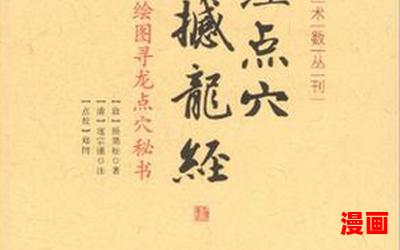 术数丛刊
点穴
撼龍經
绘图寻龙点穴秘书
【唐】杨筠松 著
【清】寇宗 注
【点校】郑同
漫画